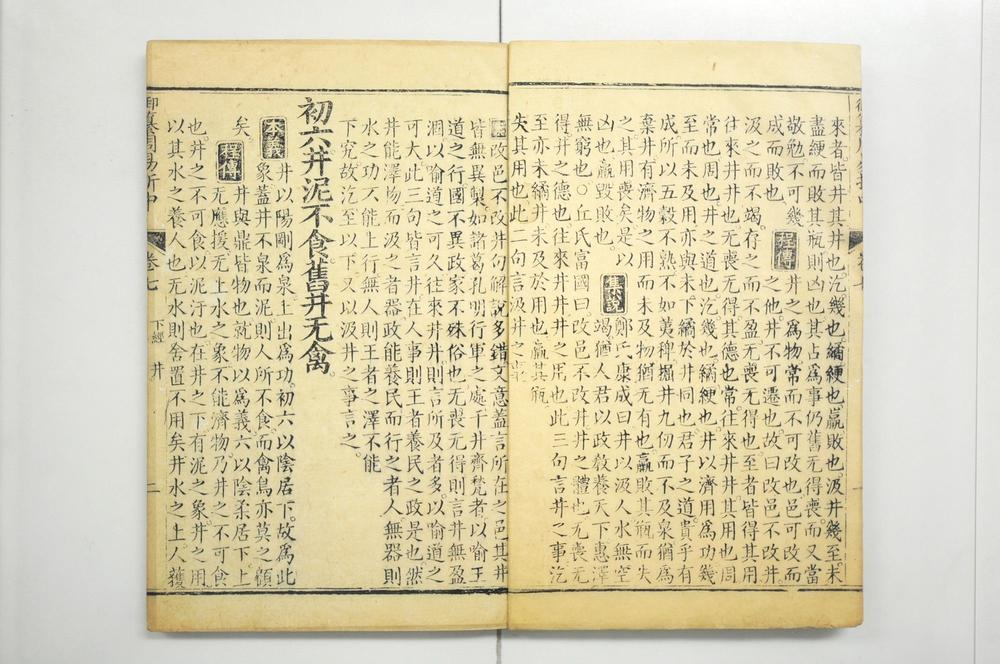 來者皆井其井也汔幾也繘綆也羸敗也汲井幾至未
盡綆而敗其瓶則凶也其占爲事仍舊无得喪而又當
敬勉不可幾 程傳 井之爲物常而不可改也邑可改而
成而敗也 之他井不可遷也故曰改邑不改井
汲之而不竭存之而不盈无喪无得也至者皆得其用
往來井井也无喪无得其德也常往來井井其用也周
常也周也井之道也汔幾也繘綆也井以濟用爲功幾
至而未及用亦與未下繘於井同也君子之道貴乎有
成所以五穀不熟不如荑稗掘井九仞而不及泉猶爲
棄井有濟物之用而未及物猶无有也羸敗其瓶而失
之其用喪矣是以 集說 鄭氏康成曰井以汲人水無空
凶也羸毀敗也 竭猶人君以政敎養天下惠澤
無窮也○丘氏富國曰改邑不改井井之體也无喪无
得井之德也往來井井井之用也此三句言井之事汔
至亦未繘井未及於用也羸其瓶
失其用也此二句言汲井之事
改邑不改井句解說多錯文意蓋言所在之邑其井
皆無異製如諸葛孔明行軍之處千井齊甃者以喻王
道之行國不異政家不殊俗也无喪无得則言井無盈
涸以喻道之可久往來井井則言所及者多以喻道之
可大此三句皆言井在人事則王者養民之政是也然
井能澤物而汲之者器政能養民而行之者人無器則
水之功不能上行無人則王者之澤不能
下究故汔至以下又以汲井之事言之
初六井泥不食舊井无禽
本義 井以陽剛爲泉上出爲功初六以陰居下故爲此
象蓋井不泉而泥則人所不食而禽鳥亦莫之顧
矣 程傳 井與鼎皆物也就物以爲義六以陰柔居下上
无應援无上水之象不能濟物乃井之不可食
也井之不可食以泥汙也在井之下有泥之象井之用
以其水之養人也无水則舍置不用矣井水之上人獲
御纂周易折中 卷七 下經 井 二